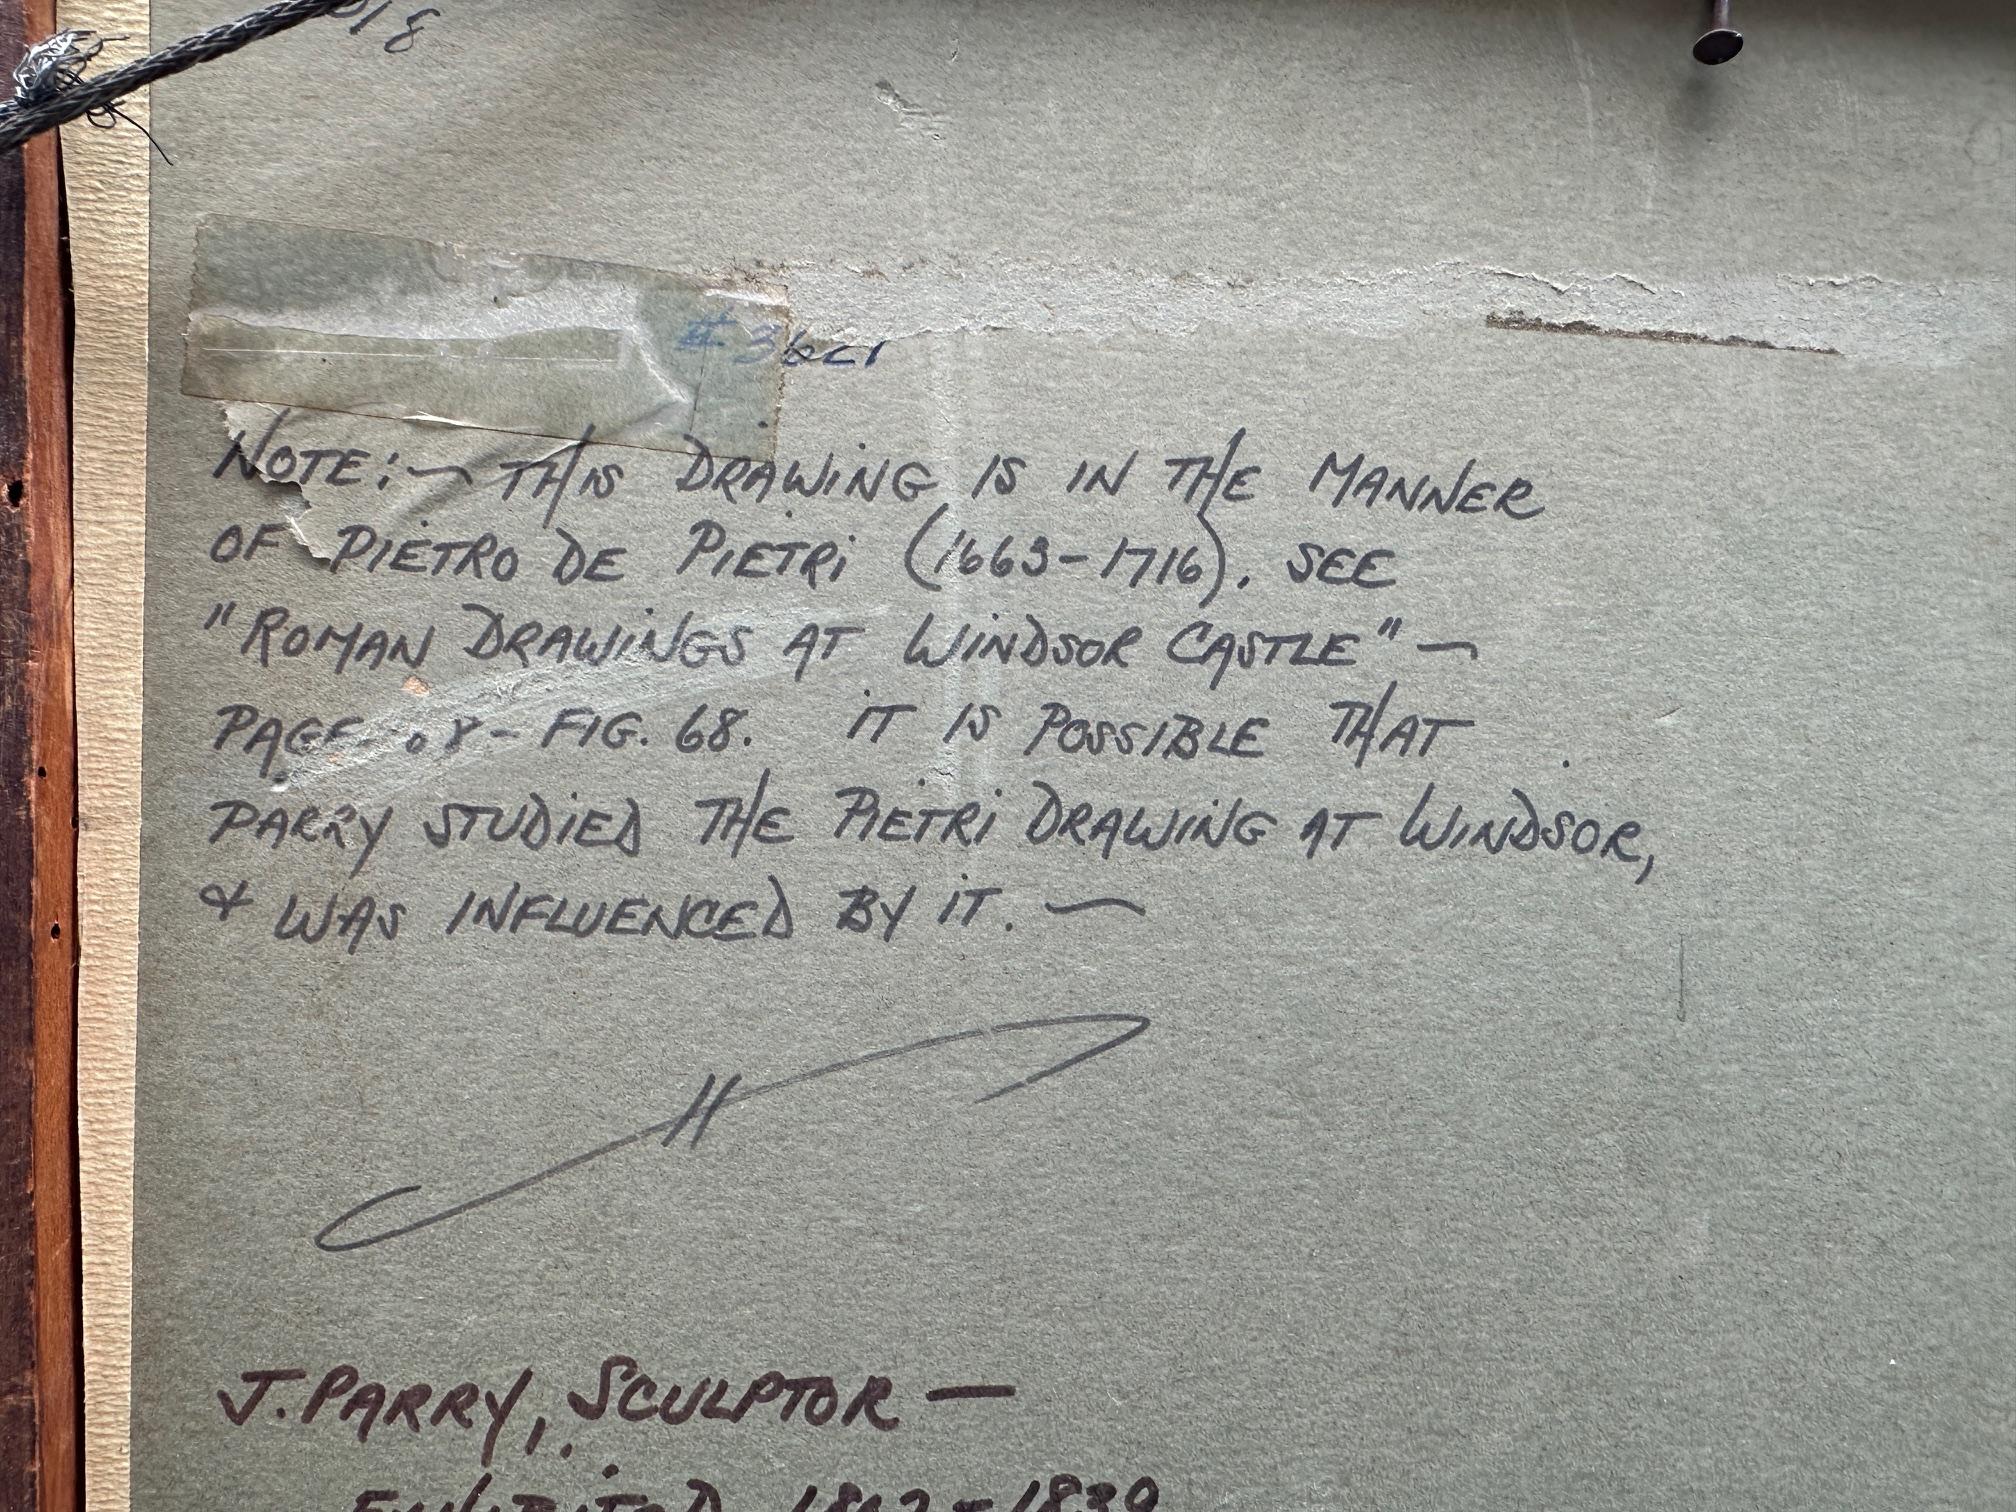 NOTE:- THIS DRAWING IS IN THE MANNER
OF PIETRO DE PIETRI (1663-1716). SEE
"ROMAN DRAWINGS AT WINDSOR CASTLE" -
PAGE - FIG. 68. IT IS POSSIBLE THAT
PARRY STUDIED THE PIETRI DRAWING AT WINDSOR,
& WAS INFLUENCED BY IT. -
J. PARRY, SCULPTOR -
EXHIBITED